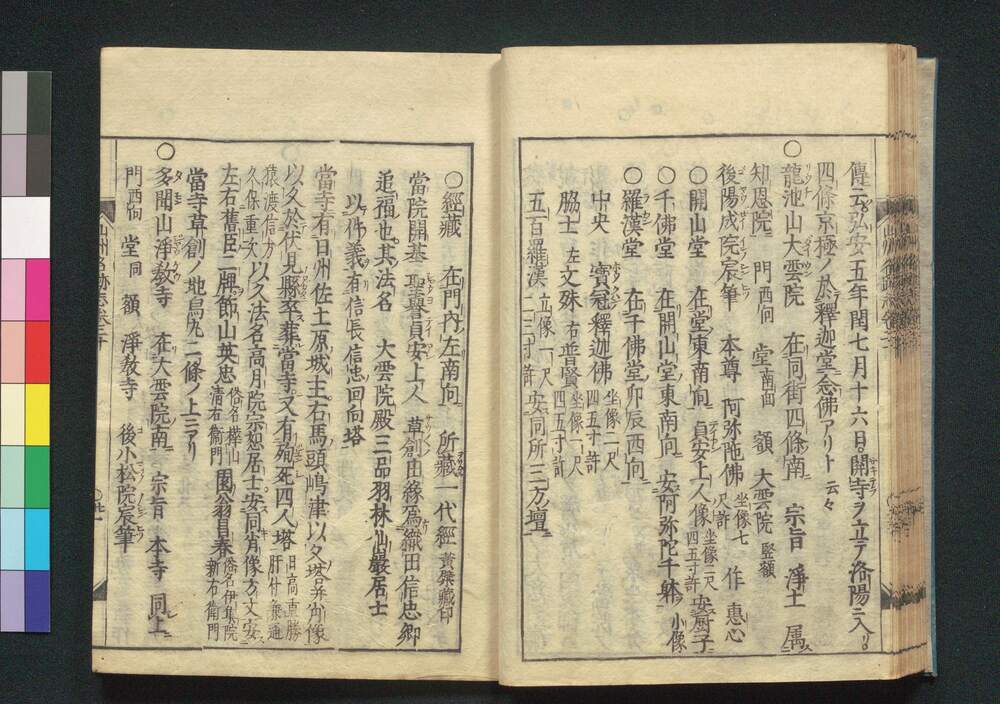 傳云弘安五年閏七月十六日開寺ヲ立テ洛陽ニ入リ
四條京極ノ於釋迦堂念佛アリト云々
○龍池山大雲院 在同街四條南ニ 宗旨 淨土 属
知恩院ニ 門西向 堂南面 額 大雲院 竪額
後陽成院宸筆 本尊 阿弥陀佛 坐像七尺許 作 惠心
○開山堂 在堂東南向 貞安上人像 坐像二尺四五寸許 安厨子ニ
○千佛堂 在開山堂東南向 安阿弥陀千躰 小像
○羅漢堂 在千佛堂卯辰西向
中央 寳冠釋迦佛 坐像二尺四五寸許
脇士 左文殊 右普賢 坐像一尺四五寸許
五百羅漢 立像一尺二三寸許 安同所三方壇ニ
○經藏 在門內左南向 所藏一代經 黄檗藏印
當院開基 聖譽貞安上人 草創由緣爲織田信忠卿
追福也其法名 大雲院殿三品羽林仙巖居士
以件義有信長信忠回向塔
當寺有日州佐土原城主右馬頭嶋津以久塔并肖像
以久於伏見縣卒葬當寺又有殉死四人塔
猿渡信方 久保重次 以久法名高月院宗恕居士安同肖像方丈安
左右舊臣二牌節山英忠 俗名樺山清右衞門 園翁自春 俗名伊集院新右衞門
當寺草創ノ地烏丸二條ノ上ニアリ
○多聞山淨敎寺 在大雲院南ニ 宗旨 本寺 同上ニ
門西向 堂同 額 淨敎寺 後小松院宸筆